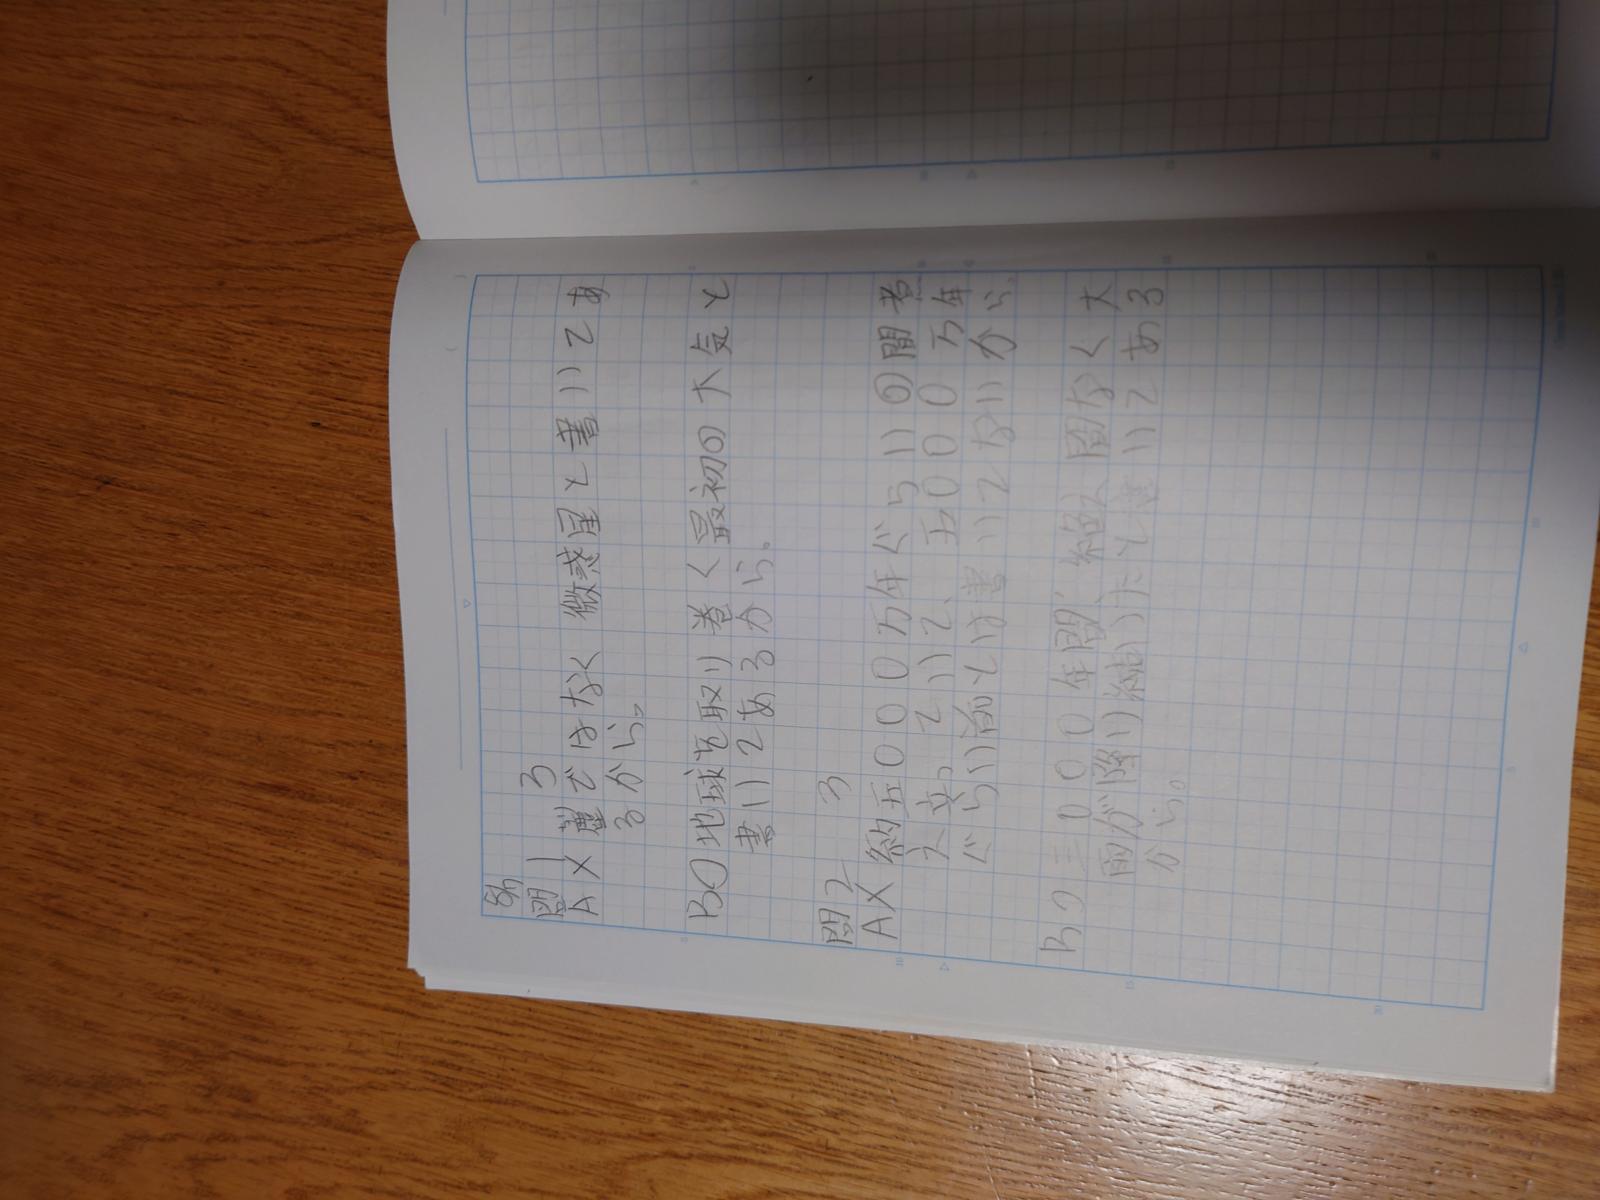 問1 3
A× 塵ではなく 微惑星と書いてあ
るから。
B○地球を取り巻く最初の大気と
書いてあるから。
問2 3
A×約五〇〇〇万年ぐらいの間考
え立。ていて、五〇〇〇万年
ぐらい前とは書いてないから
三〇〇〇年間、絶え間なく大
雨が降り続けたと書いてある
から。